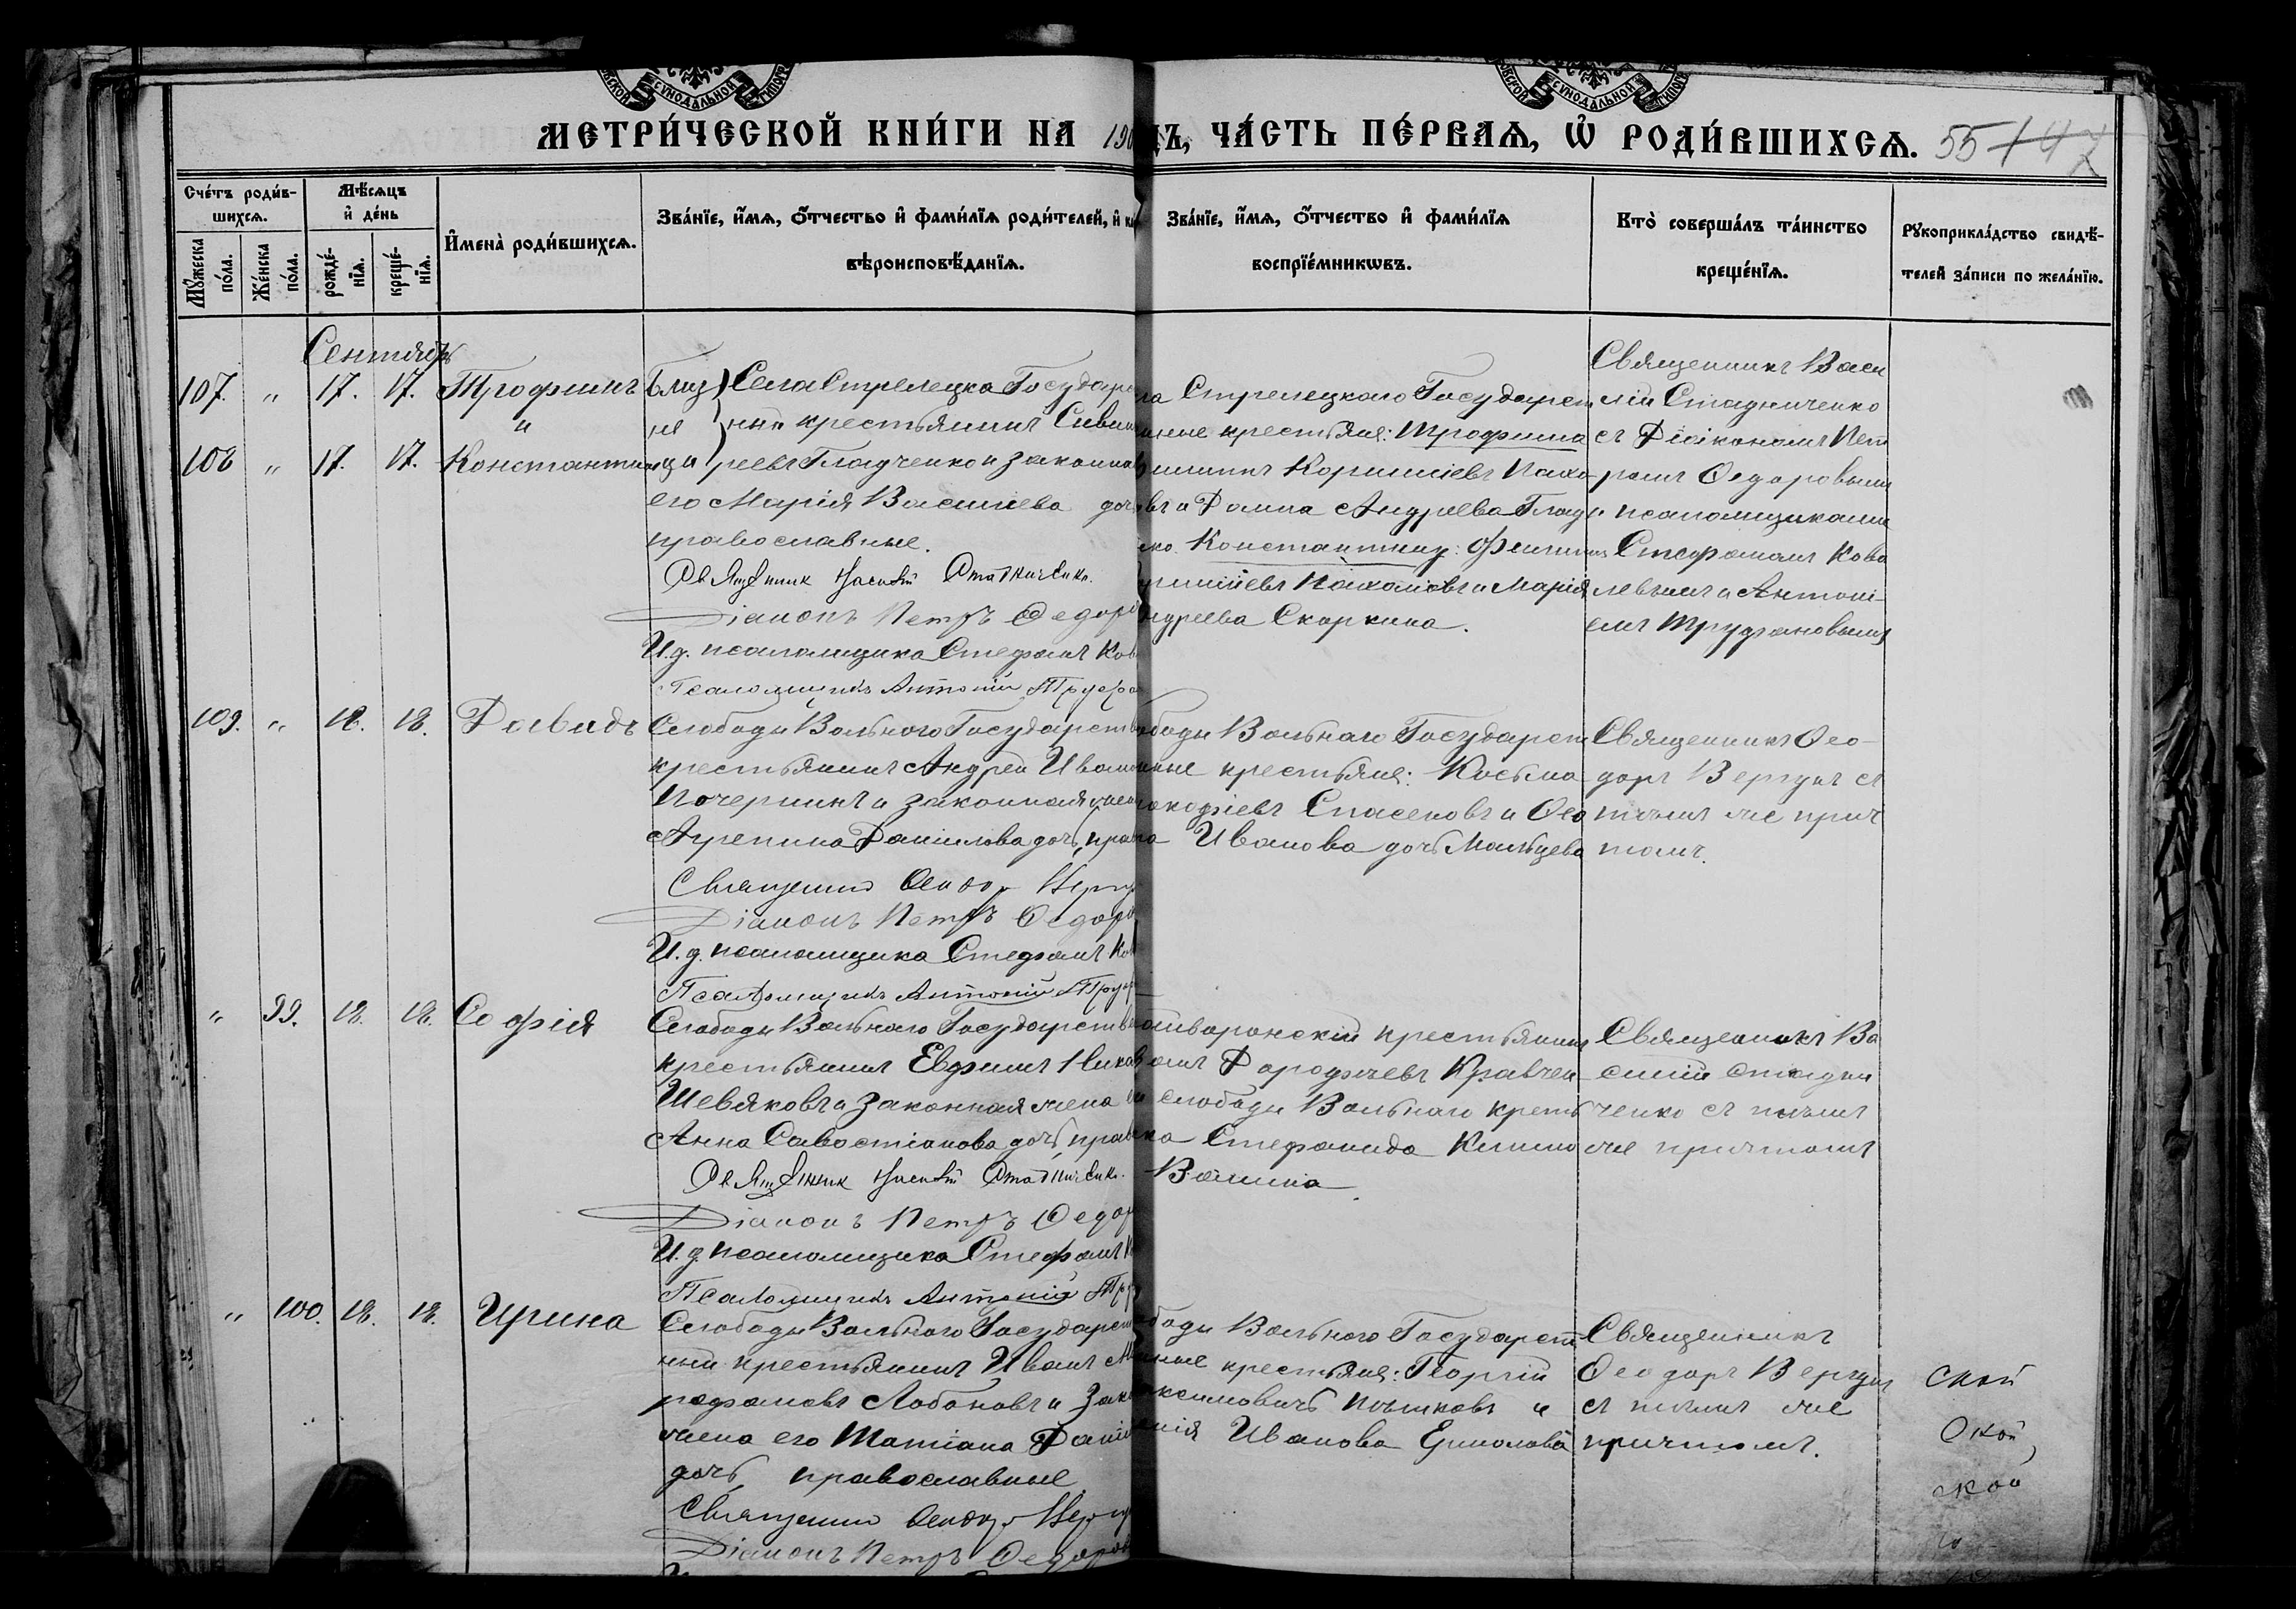 МЕТРИ́ЧЕСКОЙ КНИ́ГИ НА 190
ДЪ, ЧА́СТЬ ПЕ́РВАѦ, Ѡ҆ РОДИ́ВШИХСѦ. 55
Сче́тъ роди́в-
шихсѧ.
Мꙋ́жеска по́ла.
Же́нска по́ла.
Мѣ́сѧцъ
и҆ де́нь
рожде́-нїѧ.
креще́-нїѧ.
И҆мена̀ роди́вшихсѧ.
Зва́нїе, и҆́мѧ, ѻ҆́тчество и҆ фами́лїѧ роди́телей, и҆
вѣроисповѣ́данїѧ.
Зва́нїе, и҆́мѧ, ѻ҆́тчество и҆ фами́лїѧ
воспрїе́мникѡвъ.
Кто̀ соверша́лъ та́инство
креще́нїѧ.
Рꙋкоприкла́дство свидѣ́-
телей за́писи по жела́нїю.
Сентябрь
107. " 17. 17. Трофимъ
и
108 " 17. 17. Константинъ
Близ
не
цы
Села Стрелецка Государ
ный крестьянинъ
Гладченко и законная
его Марія Васильева доч
православные.
Священник Василий Стадниченко.
Діаконъ Петръ Федоро
И. д. псаломщика Стефанъ Ков
Псаломщикъ Антоній Труфа
Стрелецкаго Государст
ные крестьяне: Трофима
Корнилiевъ Пахо
въ и Домна Андреева Глад
ко. Константину: Филиппъ
Пахомовъ и Марія
ндреева Скоркина.
Священникъ Васи
лій Стадниченко
съ Діакономъ Пет
ромъ Ѳедоровымъ
псаломщиками
Стефаномъ Кова
левымъ и Антоні-
емъ Труфановымъ
109. " 18. 18. Давидъ
Слободы Вольного Государств
крестьянинъ Андрей Иванов
и законная жен
Агрепина Даніилова дочь, прав
Священник Феодор Вергун
Діаконъ Петръ Федоро
И. д. псаломщика Стефанъ Ков
Псаломщикъ Антоній Труф
боды Вольнаго Государст
ные крестьяне: Косьма
окофіевъ Спасеновъ и Ѳео
на Иванова дочь Мальцева
Священникъ Ѳео-
доръ Вергунъ съ
тѣмъ же прич
томъ.
" 99. 18. 18. Софія
Слободы Вольнаго Государств
крестьянинъ Евфимъ Никол
Шевяковъ и законная жена е
Анна Савостіанова дочь, прав
Священник Василий Стадниченко.
Діаконъ Петръ Федор
И. д. псаломщика Стефанъ К
Псаломщикъ Антоній Тру
крестьянинъ
Дорофеевъ Кравчен
слободы Вольнаго кресть
ка Стефанида Климо
Ванина.
Священникъ Ва
силій Стадни
ченко съ тѣмъ
же причтомъ
" 100. 18. 18. Ирина
Слободы Вольного Государст
ный крестьянинъ Иванъ М
рофановъ Лобановъ и зако
жена его Татіана Даніи
дочь, православные
Священник Феодор Вергун
Діаконъ Петръ Федоров
боды Вольнаго Государст
ные крестьяне: Георгій
ксимовичъ Пѣшковъ и
нія Иванова Ермолова
Священникъ
Ѳеодоръ Вергунъ
съ тѣмъ же
причтомъ.
ской
ской
ской